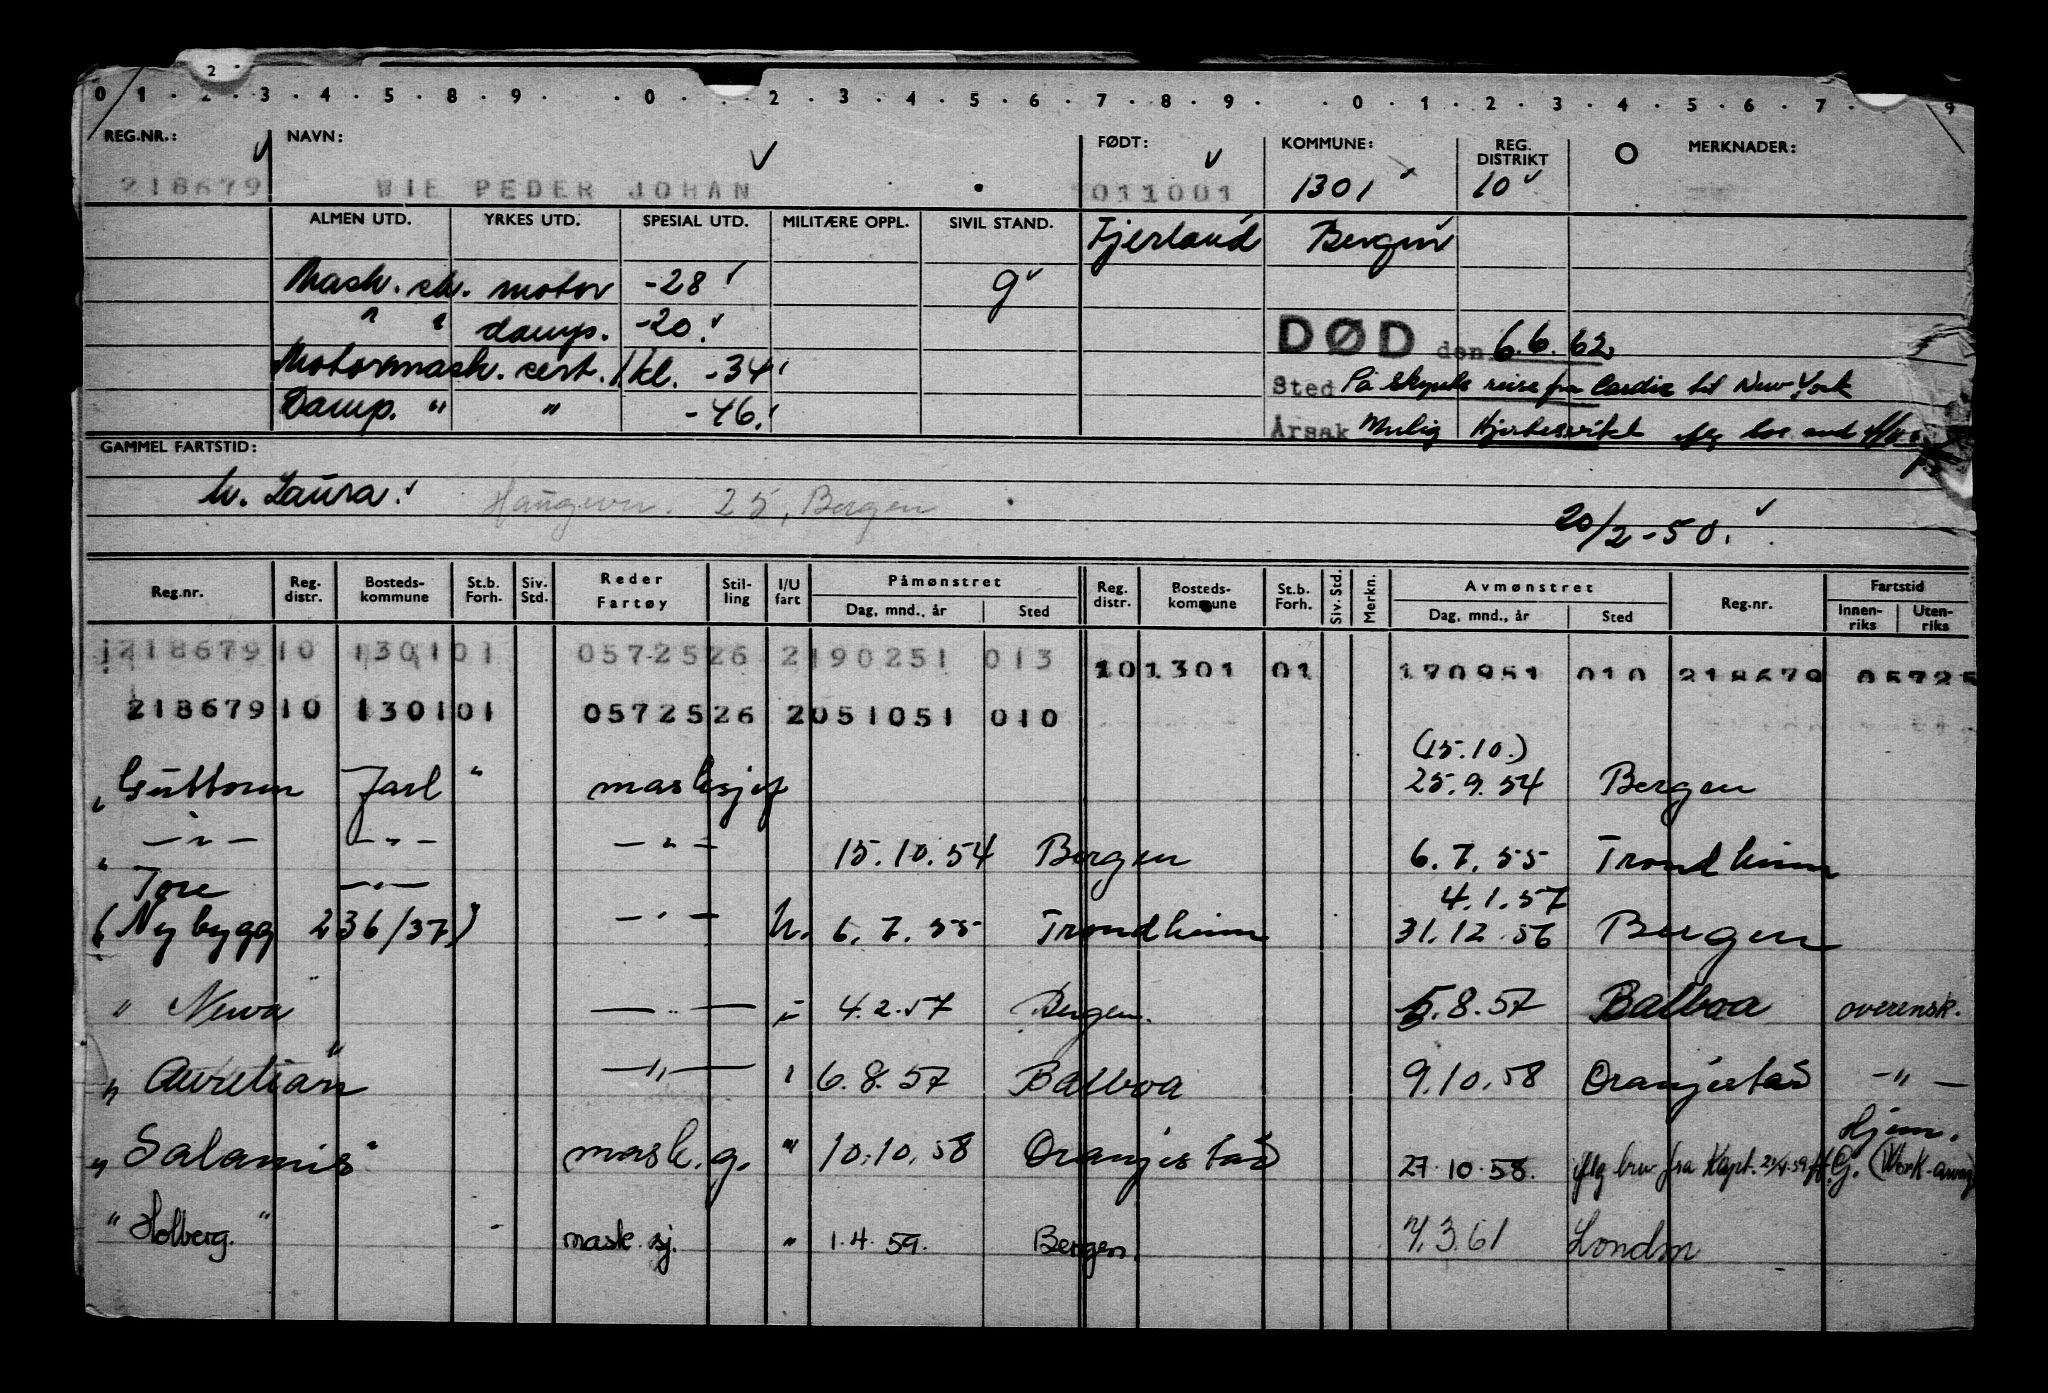 2
0 1 . 2 . 3 . 4 . 5 . 8 . 9 . . 0 . . 2 . 3 . 4 . 5 . 6 . 7 . 8 . 9 . . 0 . 1 . 2 . 3 . 4 . 5 . 6 . 7 . 9
REG.NR.: NAVN: FØDT: KOMMUNE: REG. DISTRIKT MERKNADER:
218679 WIE PEDER JOHAN 011001 1301 10
ALMEN UTD. YRKES UTD. SPESIAL UTD. MILITÆRE OPPL. SIVIL STAND. Fjerland Bergen
Mask. ch. motor -28 g
" " damp. -20
Motormask. cert. 1 kl. -34
Damp. " " -46.
DØD den 6.6.62
Sted På Skyrets reise fra Cardiz til New York
Årsak Mulig Hjertesvikt
GAMMEL FARTSTID:
h. Laura. Haugevn. 25, Bergen
20/2-50.
Reg.nr. Reg. distr. Bosteds- kommune St.b. Forh. Siv. Std. Reder Fartøy Stil- ling I/U fart Påmønstret Dag, mnd., år Sted Reg. distr. Bosteds- kommune St.b. Forh. Siv. Std. Merkn. Avmønstret Dag, mnd., år Sted Reg.nr. Fartstid Innen- riks Uten- riks
218679 10 1301 01 05725 26 2 190251 013 10 1301 01 170951 010 218679 05725
218679 10 1301 01 05725 26 2 051051 010
(15.10.)
" Guttorm Jarl " masksjef 25.9.54 Bergen
" — " — — " — — " — 15.10.54 Bergen 6.7.55 Trondheim
" Tore — " — 4.1.57
(Nybygg 236/37) — " — U. 6.7.55 Trondheim 31.12.56 Bergen
" Newa — " — " 4.2.57 Bergen. 5.8.57 Balboa overensk.
" Aurelian " — " — " 6.8.57 Balboa 9.10.58 Oranjestad — " —
" Salamis " mask.g. " 10.10.58 Oranjestad 27.10.58. iflg brev fra Kapt. 21/4-59 Hjem. (Work-away)
" Holberg. " mask.sj. " 1.4.59. Bergen. 7.3.61 London